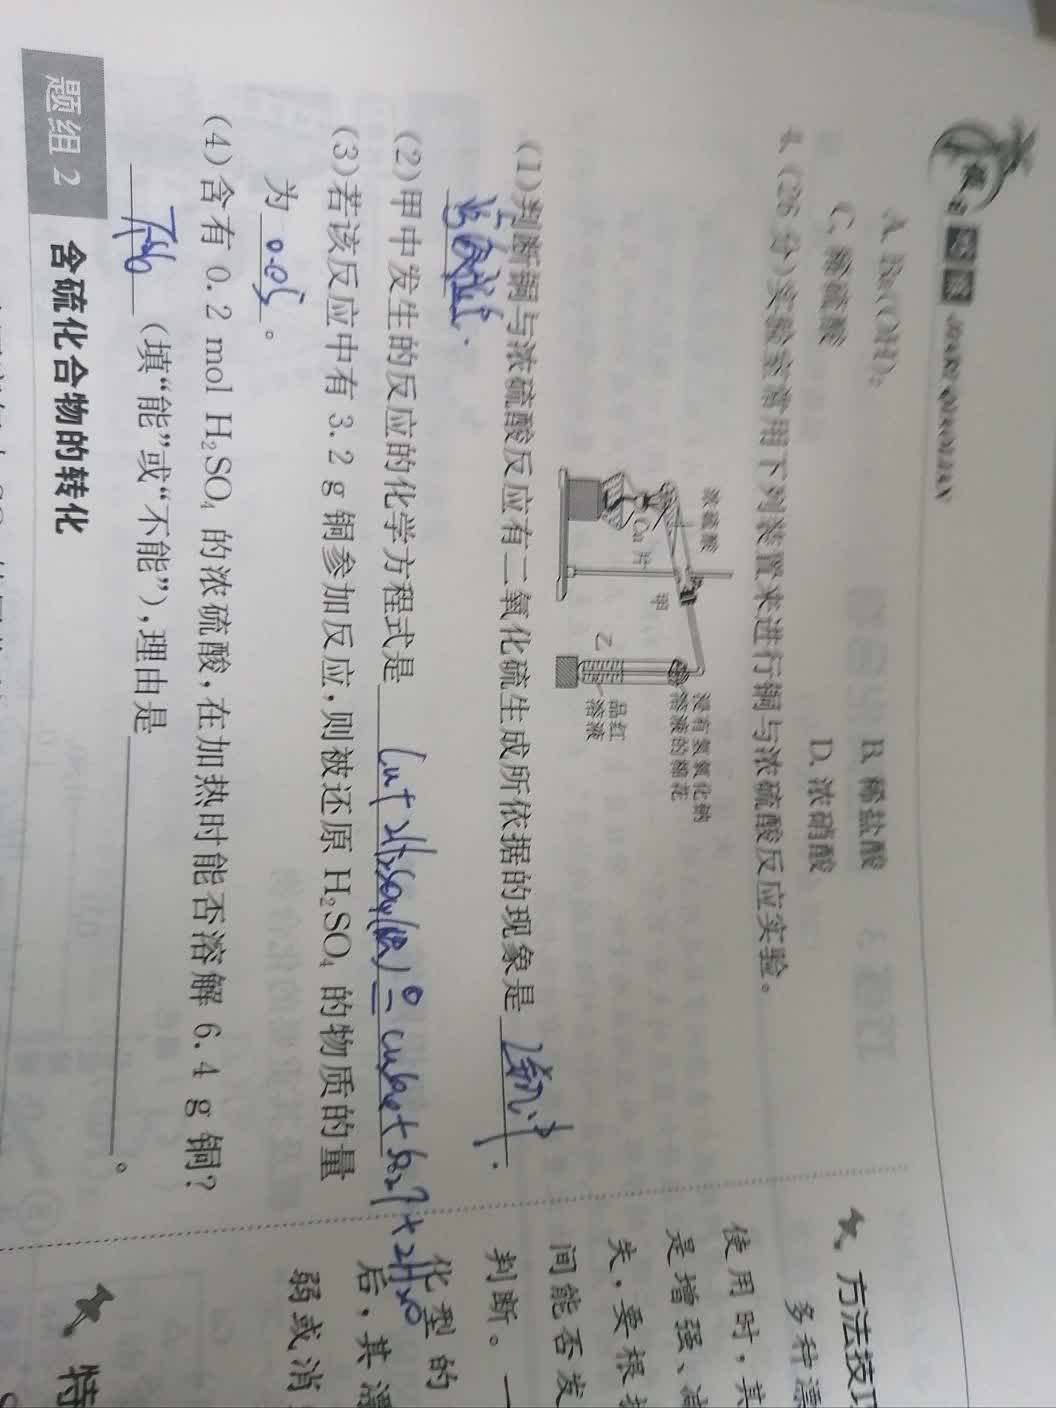 A. Ba(OH)₂
B. 稀盐酸
C. 稀硫酸
D. 浓硝酸
4. (26分)实验室常用下列装置来进行铜与浓硫酸反应实验。
浓硫酸
Cu片
甲
乙
浸有氢氧化钠
溶液的棉花
品红
溶液
(1)判断铜与浓硫酸反应有二氧化硫生成所依据的现象是
(2)甲中发生的反应的化学方程式是 Cu+2H₂SO₄(浓) = CuSO₄+SO₂↑+2H₂O
(3)若该反应中有 3.2 g 铜参加反应,则被还原 H₂SO₄ 的物质的量
为 0.05 。
(4)含有 0.2 mol H₂SO₄ 的浓硫酸,在加热时能否溶解 6.4 g 铜?
不能 (填“能”或“不能”),理由是 。
题组 2 含硫化合物的转化
方法技巧
多种漂
使用时,其
是增强、减
失,要根据
间能否发
判断。一
化型的
后,其漂
弱或消
特